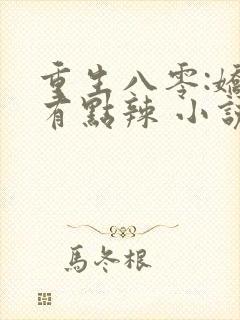 重生八零:嬌
有點辣 小說
馬冬根